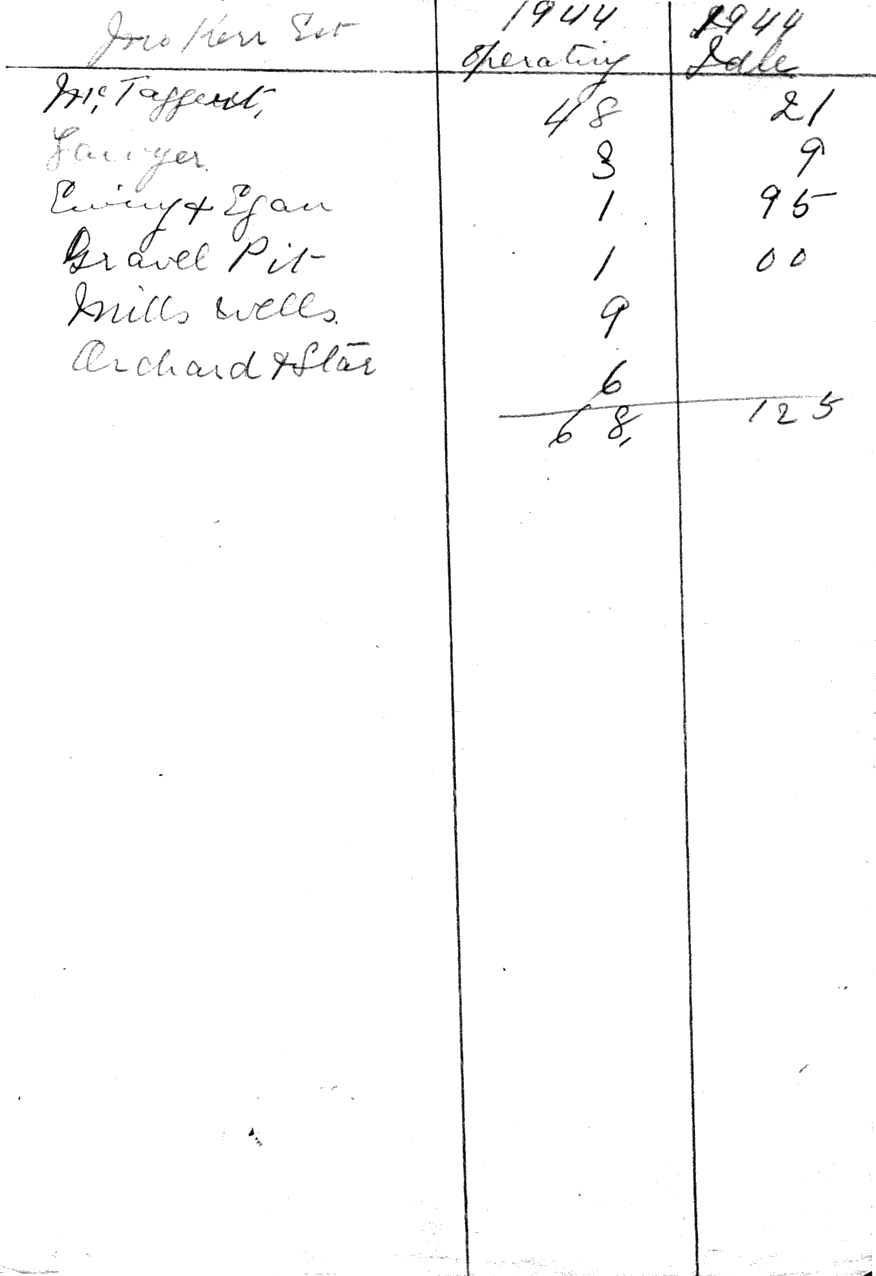 Jno Kerr Est 1944 1944
Operating Idle
Mc Taggert, 48 21
Sawyer 3 9
Ewing & Egan 1 95
Gravel Pit 1 00
Mills wells 9
Orchard & Star 6
68, 125